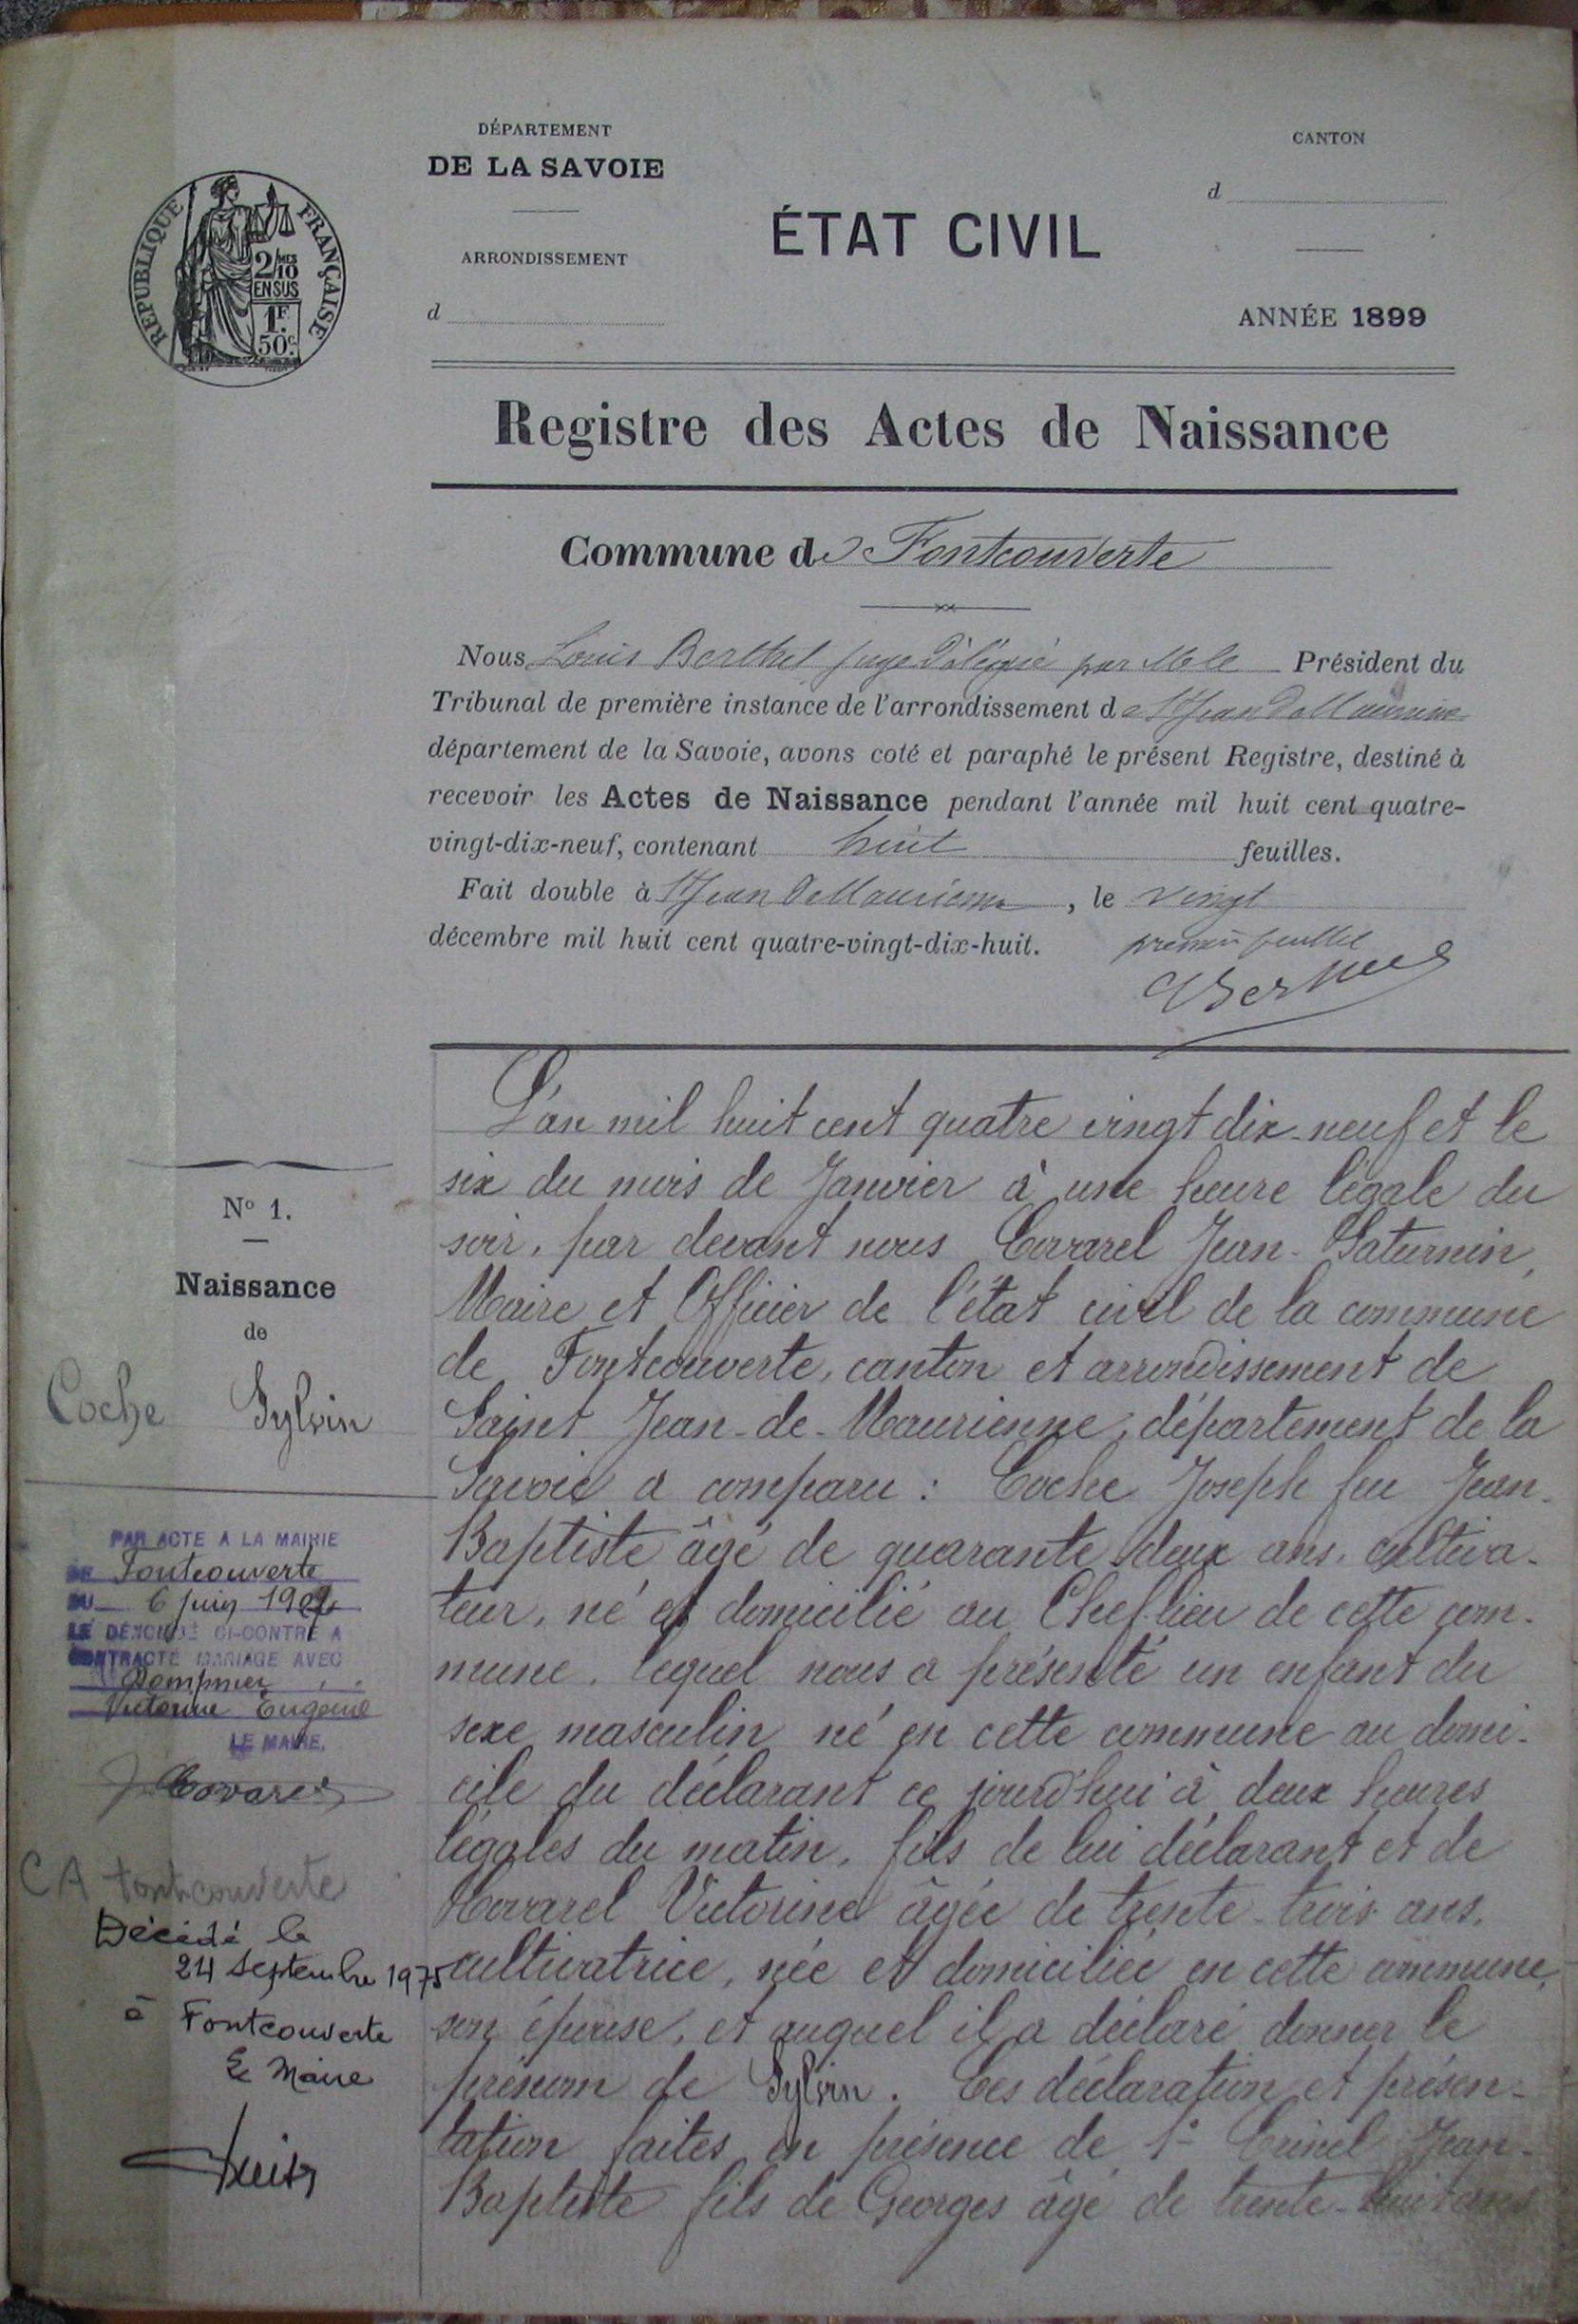 DÉPARTEMENT
DE LA SAVOIE
ARRONDISSEMENT
d
ÉTAT CIVIL
CANTON
d
ANNÉE 1899
RÉPUBLIQUE FRANÇAISE
2/10 MES
EN SUS
1F.
50c.
Registre des Actes de Naissance
Commune de Fontcouverte
Nous Louis Berthet Juge délégué par M le Président du
Tribunal de première instance de l'arrondissement de St Jean de Maurienne
département de la Savoie, avons coté et paraphé le présent Registre, destiné à
recevoir les Actes de Naissance pendant l'année mil huit cent quatre-
vingt-dix-neuf, contenant huit feuilles.
Fait double à St Jean de Maurienne, le vingt
décembre mil huit cent quatre-vingt-dix-huit.
premier feuillet
No 1.
Naissance
de
Coche Sylvin
PAR ACTE A LA MAIRIE
DE Fontcouverte
DU 6 juin
LE DÉNOMMÉ CI-CONTRE A
CONTRACTÉ MARIAGE AVEC
Dompnier
Victorine Eugénie
LE MAIRE,
Covarel
CA Fontcouverte
Décédé le
24 Septembre 1975
à Fontcouverte
Le Maire
L'an mil huit cent quatre vingt dix-neuf et le
six du mois de Janvier à une heure légale du
soir, par devant nous Covarel Jean-Saturnin,
Maire et Officier de l'état civil de la commune
de Fontcouverte, canton et arrondissement de
Saint Jean-de-Maurienne, département de la
Savoie a comparu : Coche Joseph feu Jean-
Baptiste âgé de quarante deux ans, cultiva-
teur, né et domicilié au Chef-lieu de cette com-
mune, lequel nous a présenté un enfant du
sexe masculin né en cette commune au domi-
cile du déclarant ce jourd'hui à deux heures
légales du matin, fils de lui déclarant et de
Covarel Victorine âgée de trente-trois ans,
cultivatrice, née et domiciliée en cette commune,
son épouse, et auquel il a déclaré donner le
prénom de Sylvin. Ces déclaration et présen-
tation faites en présence de 1° Jean-
Baptiste fils de Georges âgé de trente-huit ans